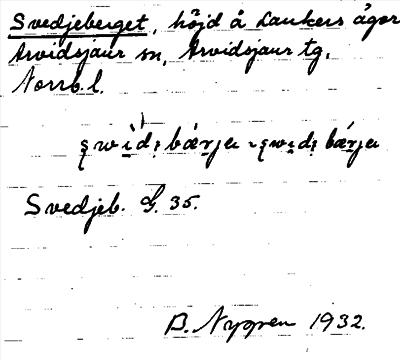 Svedjeberget, höjd å Laukers ägor
Arvidsjaur sn, Arvidsjaur tg.
Norrb. l.
Svedjeb. G. 35.
B. Nygren 1932.